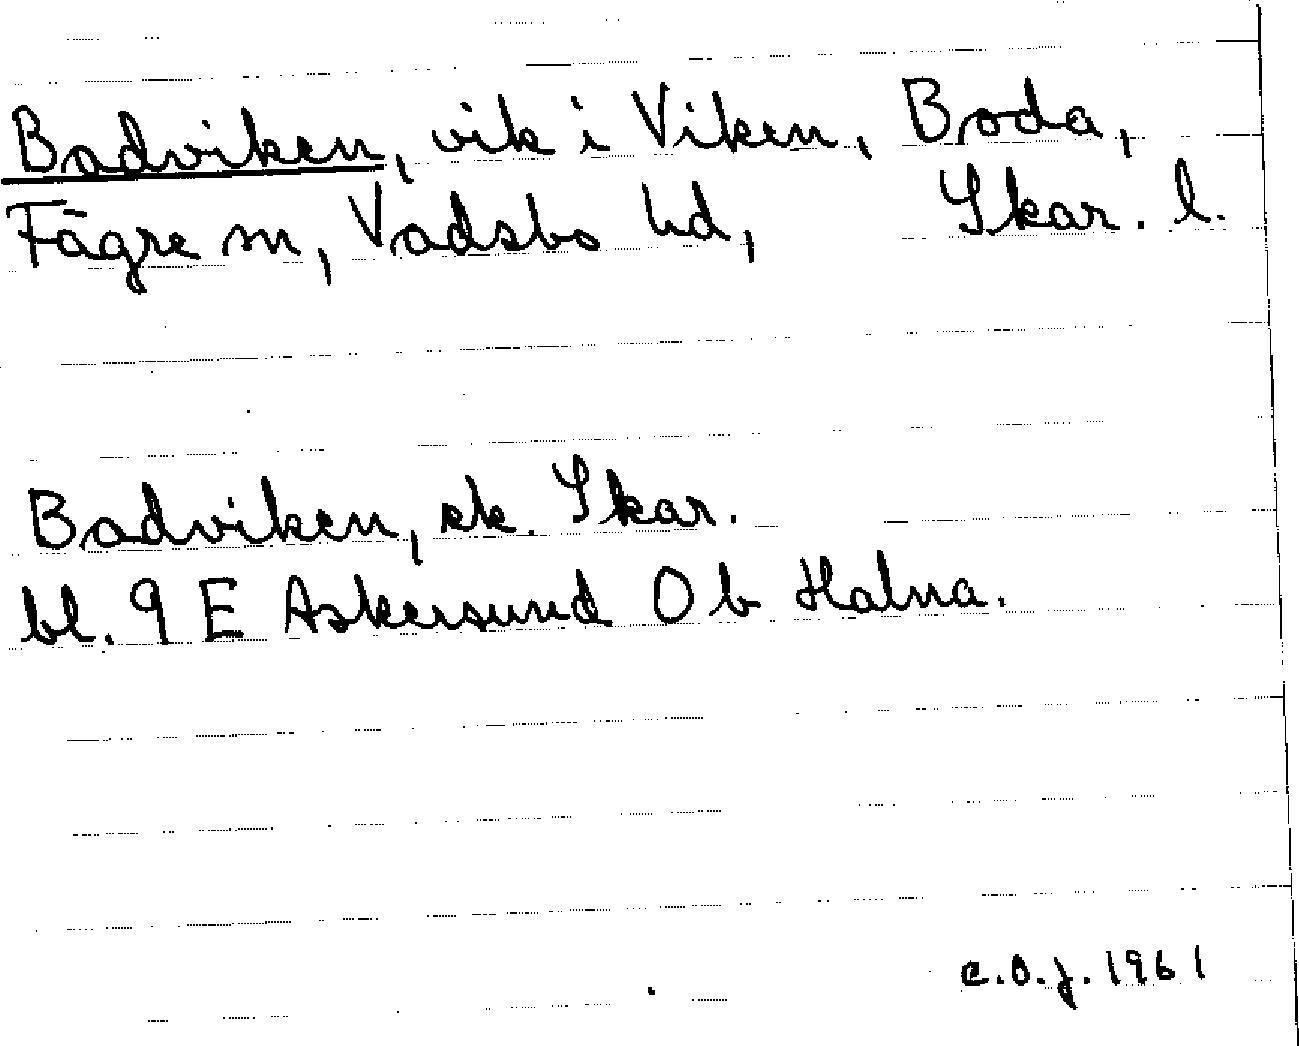 Badviken, vik i Viken, Boda,
Fägre sn, Vadsbo hd, Skar. l.
Badviken, ek. Skar.
bl. 9 E Askersund O b Halna.
C.O.J. 1961